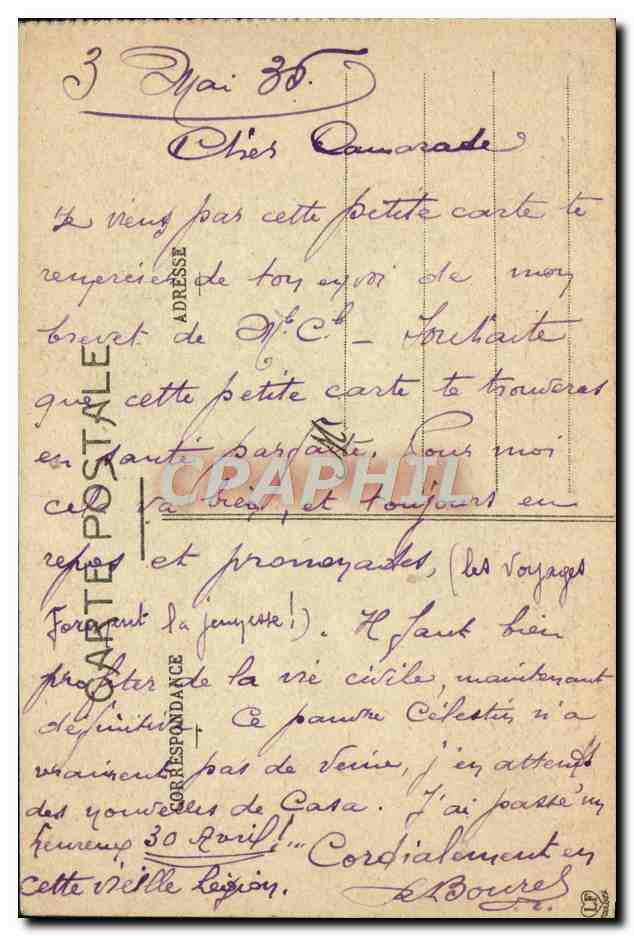 3 Mai 35.
Cher Camarade
Je viens par cette petite carte te
remercier de ton envoi de mon
brevet de Mt. Ct. - Souhaite
que cette petite carte te trouveras
en santé parfaite. Pour moi
cela va bien, et toujours en
repos et promenades, (les voyages
Formant la jeunesse!). Il faut bien
profiter de la vie civile, maintenant
définitive. Ce pauvre Célestin n'a
vraiment pas de veine, j'en attends
des nouvelles de Casa. J'ai passé un
heureux 30 Avril!... Cordialement en
cette vieille Légion. Bourel
CARTE POSTALE
ADRESSE
CORRESPONDANCE
M
CPAPHIL
LF